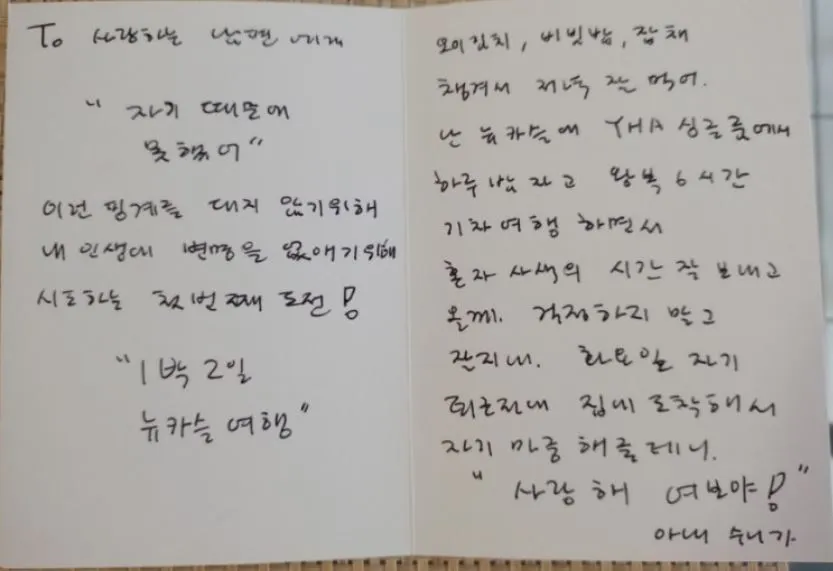 To 사랑하는 남편에게
"자기 때문에
못했어"
이런 핑계를 대지 않기위해
내 인생에 변명을 없애기위해
시도하는 첫번째 도전!
"1박 2일
뉴카슬 여행"
오이김치, 비빔밥, 잡채
챙겨서 저녁 잘 먹어.
난 뉴카슬에 YHA 싱글룸에서
하루밤 자고 왕복 6시간
기차여행 하면서
혼자 사색의 시간 잘 보내고
올께. 걱정하지 말고
잘지내. 화요일 자기
퇴근전에 집에 도착해서
자기 마중 해줄테니.
"사랑해 여보야!"
아내 수니가